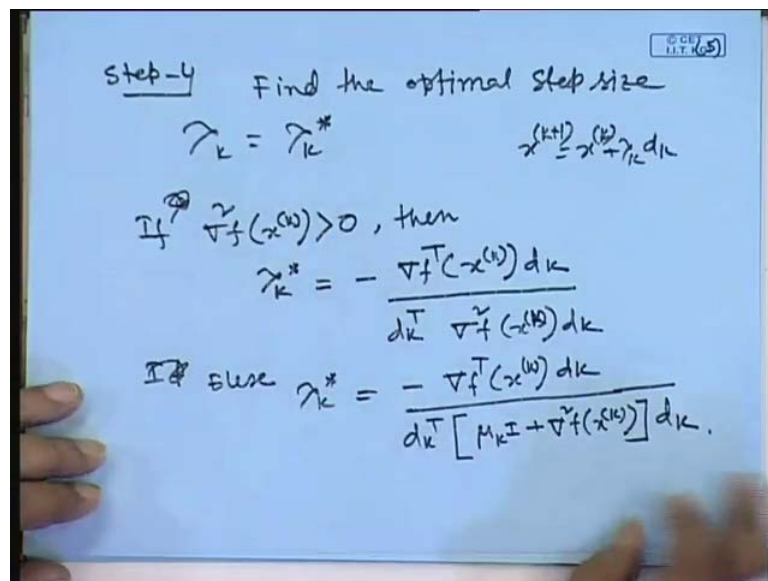 © CET
I.I.T. KGP
Step-4 Find the optimal step size
λ_k = λ_k^* x^(k+1) = x^(k) + λ_k d_k
If ∇²f(x^(k)) > 0, then
λ_k^* = - ∇f^T(x^(k)) d_k / d_k^T ∇²f(x^(k)) d_k
Else λ_k^* = - ∇f^T(x^(k)) d_k / d_k^T [μ_k I + ∇²f(x^(k))] d_k.